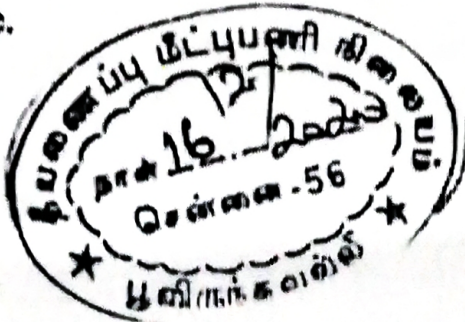 தீயணைப்பு மீட்புபணி நிலையம்
நாள் 16 2 2023
சென்னை - 56
பூவிருந்தவல்லி